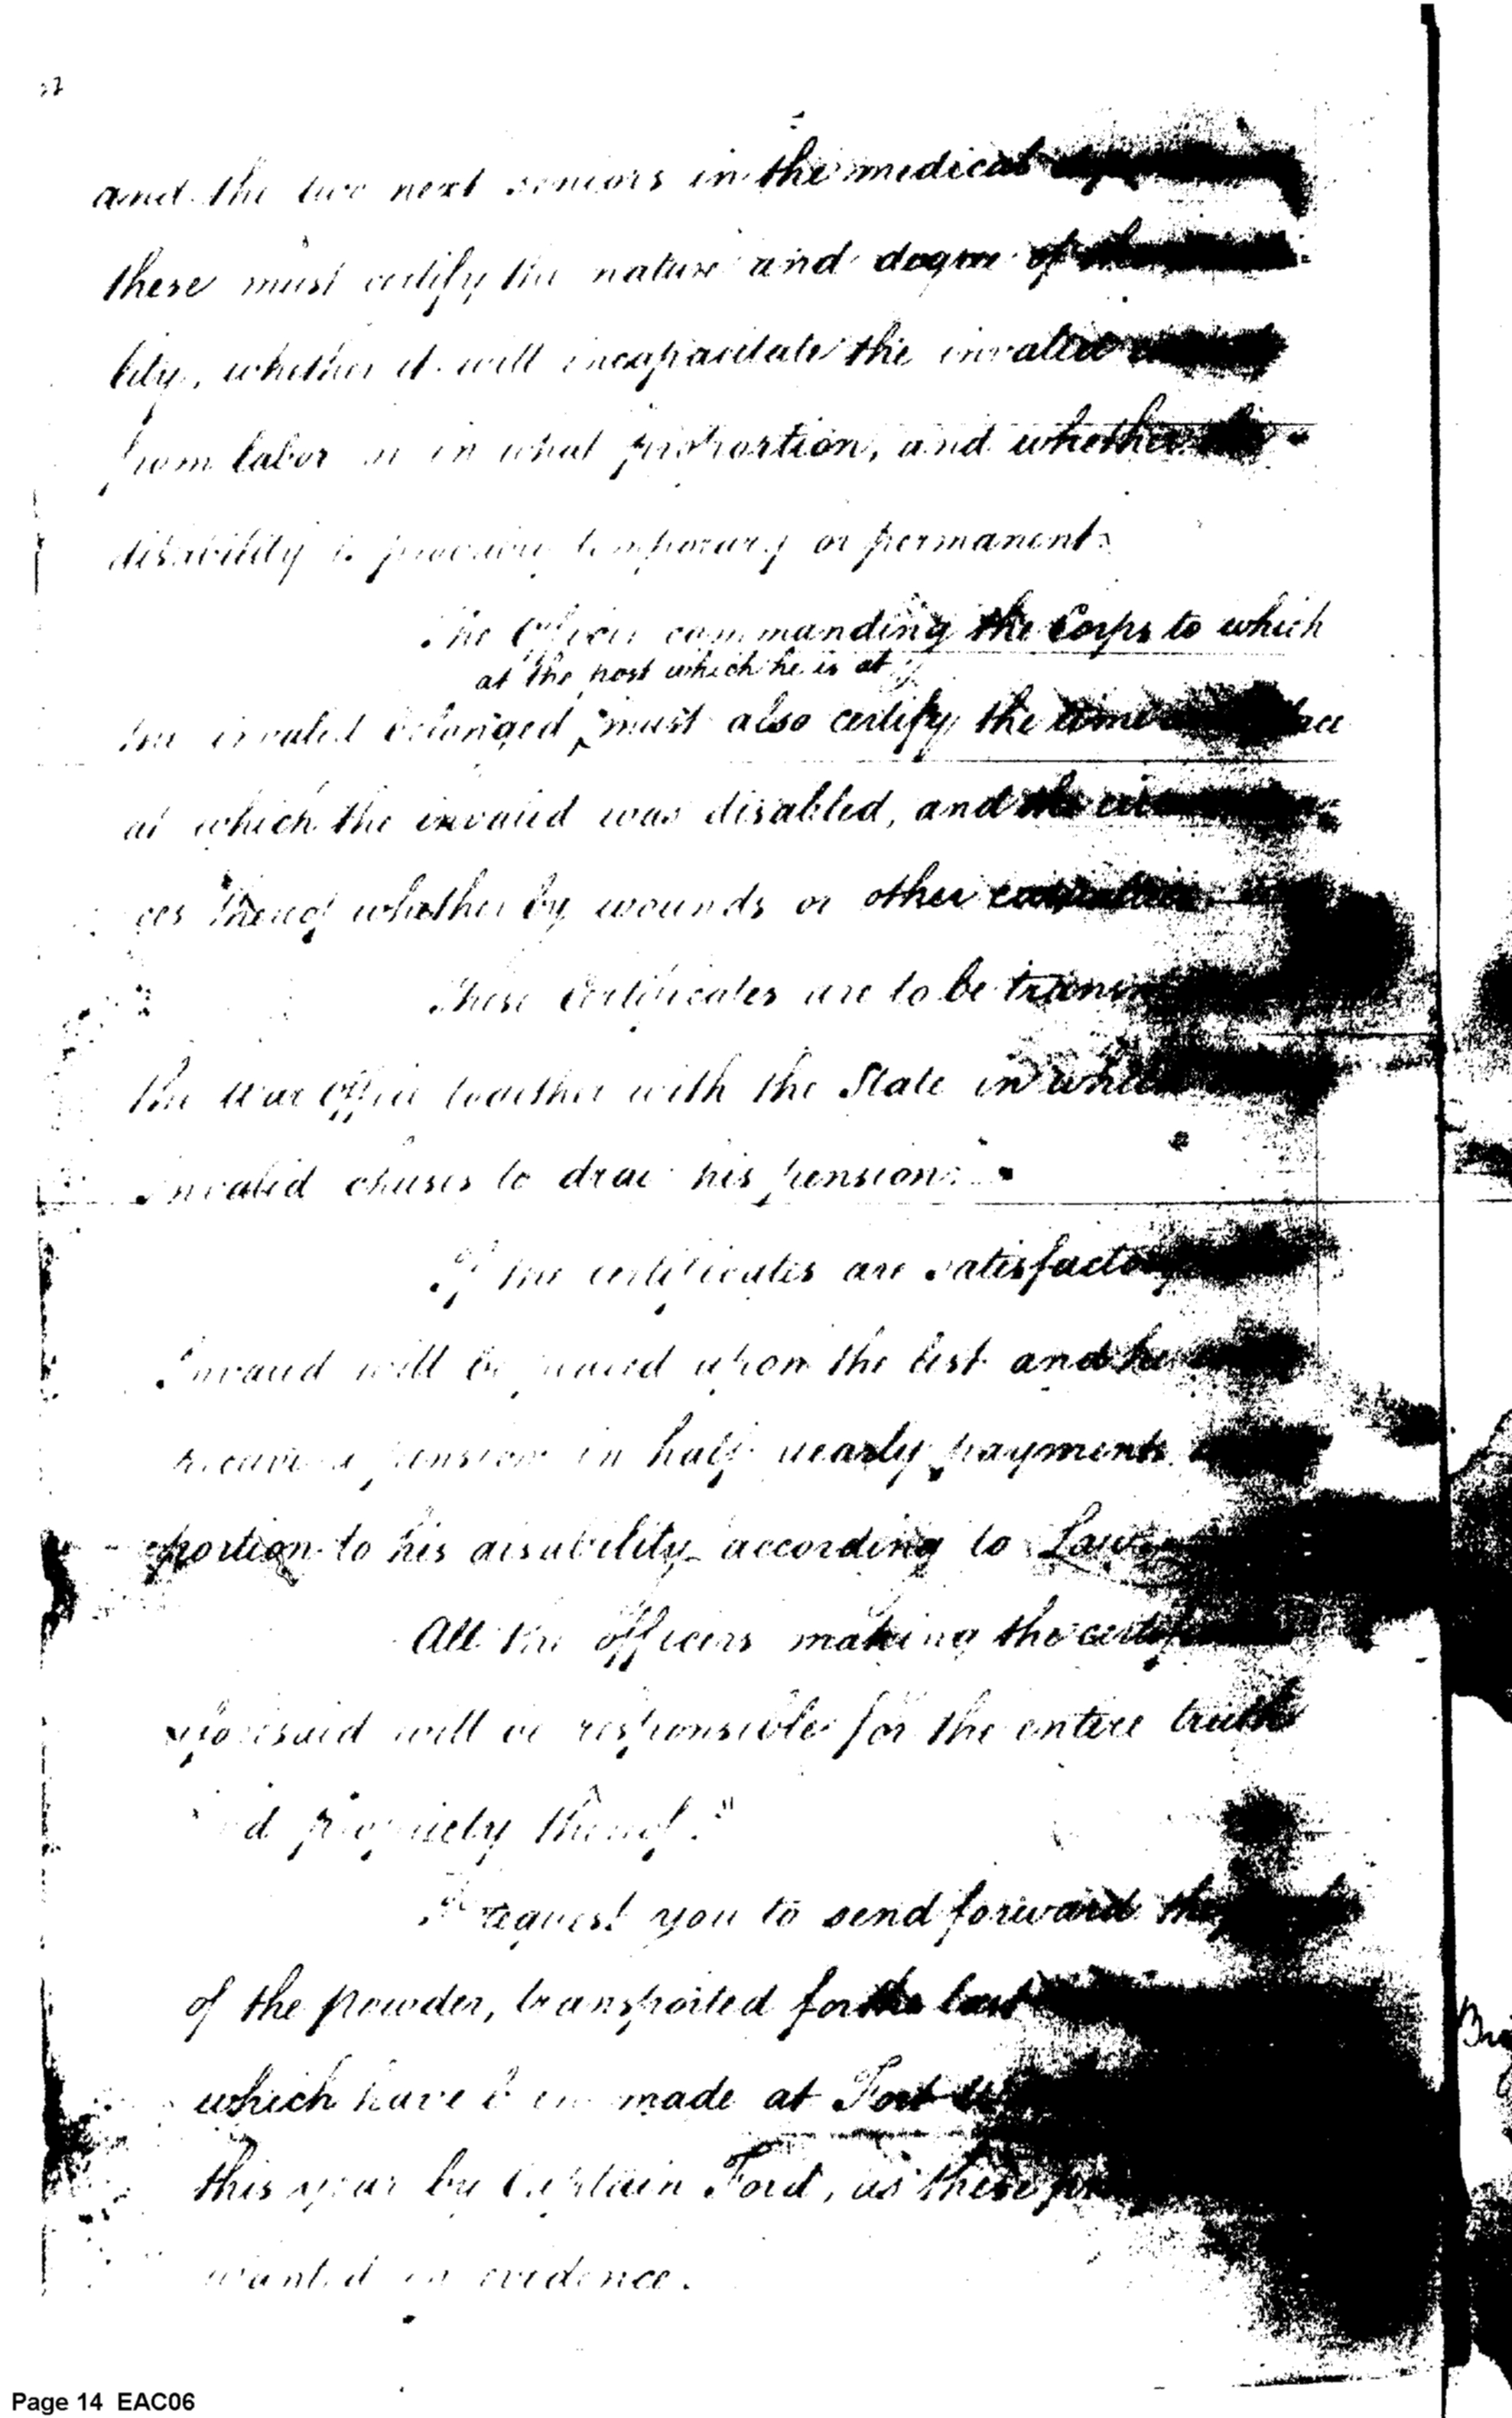 and the two next seniors in the medical
these must certify the nature and degree of
lity, whether it will incapacitate the invalid
from labor or in what proportion, and whether
disability is probably temporary or permanent.
The Officer commanding the Corps to which
at the post which he is at
the invalid belonged must also certify the time
at which the invalid was disabled, and the
ces thereof whether by wounds or other
These Certificates are to be
the War Office together with the State in which
invalid chuses to draw his pension.
If the certificates are satisfactory
Invalid will be placed upon the list and he
receive a pension in half yearly payments
portion to his disability according to Law
All the officers making the
aforesaid will be responsible for the entire truth
and propriety thereof."
I request you to send forward the
of the powder, transported for the last
which have been made at Fort
this year by Captain Ford, as these
wanted in evidence.
Page 14 EAC06